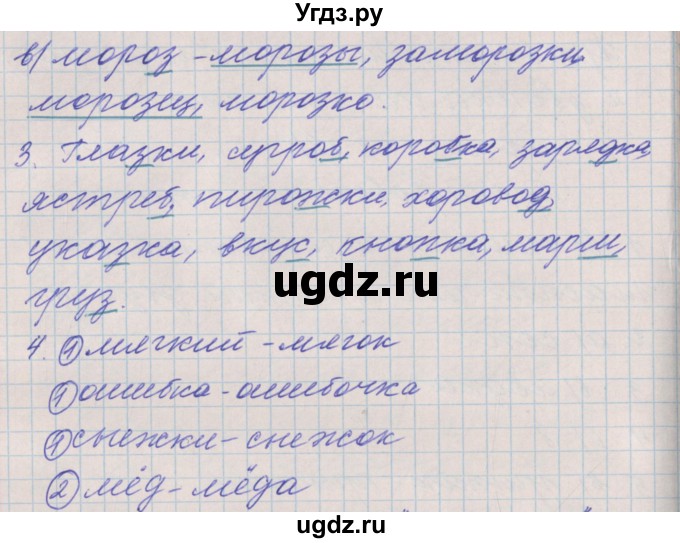 Угдз.ру
в) мороз - морозы, заморозки
морозец, морозко.
3. Глазки, сугроб, коробка, зарядка,
ястреб, пирожки, хоровод,
указка, вкус, кнопка, марш,
ugdz.ru
груз.
4. ① мягкий - мягок
① ошибка - ошибочка
① снежки - снежок
② мёд - мёда
ugdz.ru